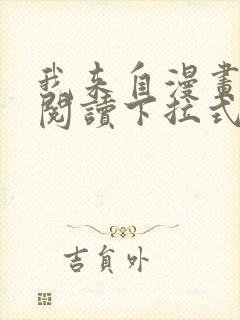 我來自漫畫
閱讀下拉式
吉負外